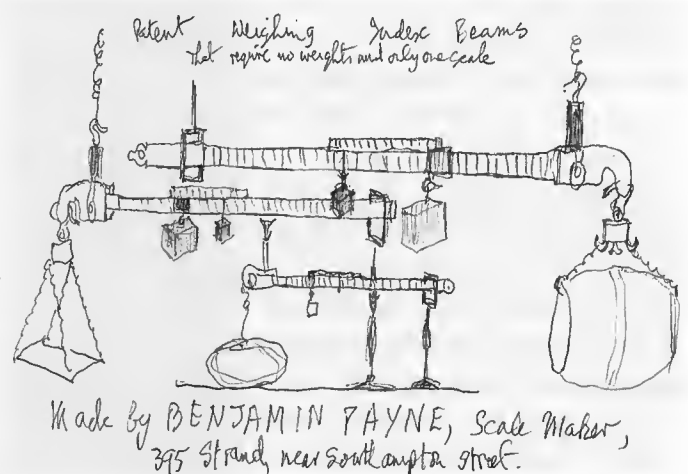 Patent Weighing Index Beams
that require no weights and only one scale
Made by BENJAMIN PAYNE, Scale Maker,
395 Strand, near Southampton Street.